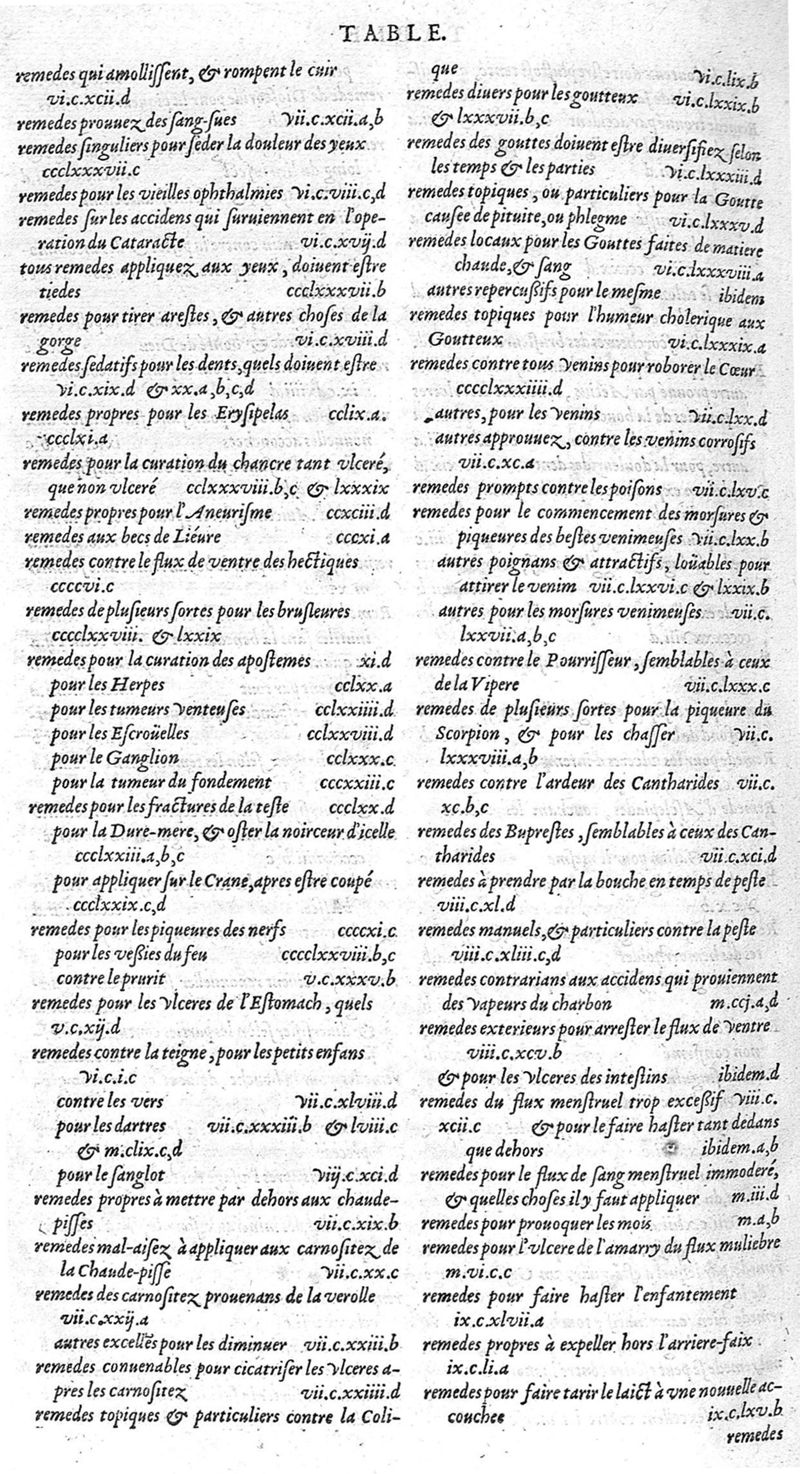 TABLE.
remedes qui amollissent, & rompent le cuir
vi.c.xcii.d
remedes prouuez des sang-sues vii.c.xcii.a,b
remedes singuliers pour seder la douleur des yeux
ccclxxxvii.c
remedes pour les vieilles ophthalmies vi.c.viii.c,d
remedes sur les accidens qui suruiennent en l'ope-
ration du Cataracte vi.c.xvij.d
tous remedes appliquez aux yeux, doiuent estre
tiedes ccclxxxvii.b
remedes pour tirer arestes, & autres choses de la
gorge vi.c.xviii.d
remedes sedatifs pour les dents, quels doiuent estre
vi.c.xix.d & xx.a,b,c,d
remedes propres pour les Erysipelas cclix.a.
ccclxi.a
remedes pour la curation du chancre tant vlceré,
que non vlceré cclxxxviii.b,c & lxxxix
remedes propres pour l'Aneurisme ccxciii.d
remedes aux becs de Liéure cccxi.a
remedes contre le flux de ventre des hectiques
ccccvi.c
remedes de plusieurs sortes pour les brusleures
cccclxxviii. & lxxix
remedes pour la curation des apostemes xi.d
pour les Herpes cclxx.a
pour les tumeurs venteuses cclxxiiii.d
pour les Escroüelles cclxxviii.d
pour le Ganglion cclxxx.c
pour la tumeur du fondement cccxxiii.c
remedes pour les fractures de la teste ccclxx.d
pour la Dure-mere, & oster la noirceur d'icelle
ccclxxiii.a,b,c
pour appliquer sur le Crane, apres estre coupé
ccclxxix.c,d
remedes pour les piqueures des nerfs ccccxi.c
pour les vessies du feu cccclxxviii.b,c
contre le prurit v.c.xxxv.b
remedes pour les vlceres de l'Estomach, quels
v.c.xij.d
remedes contre la teigne, pour les petits enfans
vi.c.i.c
contre les vers vii.c.xlviii.d
pour les dartres vii.c.xxxiii.b & lviii.c
& m.clix.c,d
pour le sanglot viij.c.xci.d
remedes propres à mettre par dehors aux chaude-
pisses vii.c.xix.b
remedes mal-aisez à appliquer aux carnositez de
la Chaude-pisse vii.c.xx.c
remedes des carnositez prouenans de la verolle
vii.c.xxij.a
autres excellẽs pour les diminuer vii.c.xxiii.b
remedes conuenables pour cicatriser les vlceres a-
pres les carnositez vii.c.xxiiii.d
remedes topiques & particuliers contre la Coli-
que vi.c.lix.b
remedes diuers pour les goutteux vi.c.lxxix.b
& lxxxvii.b,c
remedes des gouttes doiuent estre diuersifiez selon
les temps & les parties vi.c.lxxxiii.d
remedes topiques, ou particuliers pour la Goutte
causee de pituite, ou phlegme vi.c.lxxxv.d
remedes locaux pour les Gouttes faites de matiere
chaude, & sang vi.c.lxxxviii.a
autres repercussifs pour le mesme ibidem
remedes topiques pour l'humeur cholerique aux
Goutteux vi.c.lxxxix.a
remedes contre tous venins pour roborer le Cœur
cccclxxxiiii.d
autres, pour les venins vii.c.lxx.d
autres approuuez, contre les venins corrosifs
vii.c.xc.a
remedes prompts contre les poisons vii.c.lxv.c
remedes pour le commencement des morsures &
piqueures des bestes venimeuses vii.c.lxx.b
autres poignans & attractifs, loüables pour
attirer le venim vii.c.lxxvi.c & lxxix.b
autres pour les morsures venimeuses vii.c.
lxxvii.a,b,c
remedes contre le Pourrisseur, semblables à ceux
de la Vipere vii.c.lxxx.c
remedes de plusieurs sortes pour la piqueure du
Scorpion, & pour les chasser vii.c.
lxxxviii.a,b
remedes contre l'ardeur des Cantharides vii.c.
xc.b,c
remedes des Buprestes, semblables à ceux des Can-
tharides vii.c.xci.d
remedes à prendre par la bouche en temps de peste
viii.c.xl.d
remedes manuels, & particuliers contre la peste
viii.c.xliii.c,d
remedes contrarians aux accidens qui prouiennent
des vapeurs du charbon m.ccj.a,d
remedes exterieurs pour arrester le flux de ventre
viii.c.xcv.b
& pour les vlceres des intestins ibidem.d
remedes du flux menstruel trop excessif viii.c.
xcii.c & pour le faire haster tant dedans
que dehors ibidem.a,b
remedes pour le flux de sang menstruel immoderé,
& quelles choses il y faut appliquer m.iii.d
remedes pour prouoquer les mois m.a,b
remedes pour l'vlcere de l'amarry du flux muliebre
m.vi.c.c
remedes pour faire haster l'enfantement
ix.c.xlvii.a
remedes propres à expeller hors l'arriere-faix
ix.c.li.a
remedes pour faire tarir le laict à vne nouuelle ac-
couchee ix.c.lxv.b
remedes